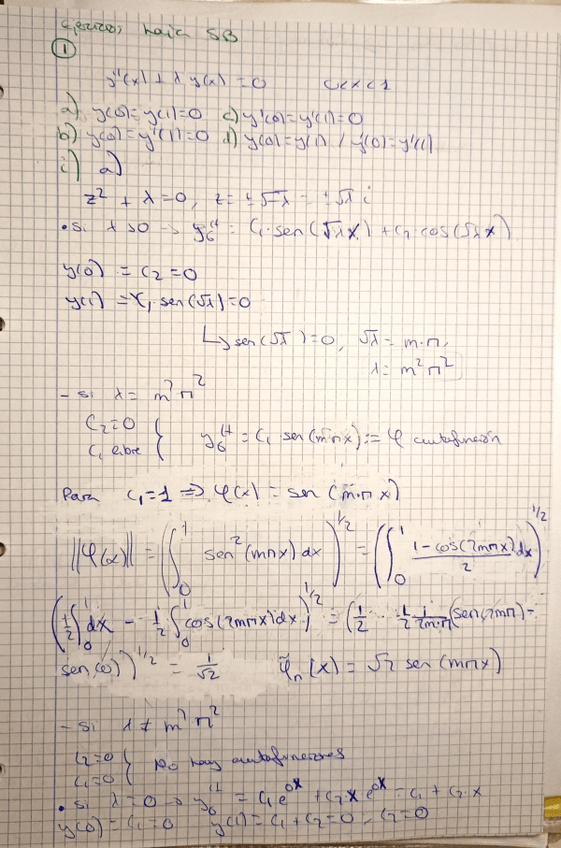 ①
y''(x) + λ y(x) = 0    0<x<1
a) y(0)=y(1)=0  c) y'(0)=y'(1)=0
b) y(0)=y'(1)=0  d) y(0)=y(1) / y'(0)=y'(1)
i) a)
z² + λ = 0, z = ±√-λ = ±√λ i
• Si λ>0 → y_G^H = C₁·sen(√λx) + C₂·cos(√λx)
y(0) = C₂ = 0
y(1) = C₁·sen(√λ) = 0
↳ sen(√λ) = 0, √λ = m·π,
λ = m²π²
- si λ = m²π²
C₂=0
C₁ libre } y_G^H = C₁ sen(mπx) := φ autofunción
Para C₁=1 ⇒ φ(x) = sen(m·πx)
||φ(x)|| = (∫₀¹ sen²(mπx) dx)^1/2 = (∫₀¹ (1-cos(2mπx))/2 dx)^1/2
(1/2 ∫₀¹ dx - 1/2 ∫₀¹ cos(2mπx)dx)^1/2 = (1/2 - 1/2 1/2mπ (sen(2mπ) -
sen(0)))^1/2 = 1/√2    φ̃_n(x) = √2 sen(mπx)
- Si λ ≠ m²π²
C₂=0
C₁=0 } No hay autofunciones
• Si λ=0 → y_G^H = C₁e^0x + C₂xe^0x = C₁ + C₂·x
y(0) = C₁ = 0    y(1) = C₁ + C₂ = 0, C₂ = 0